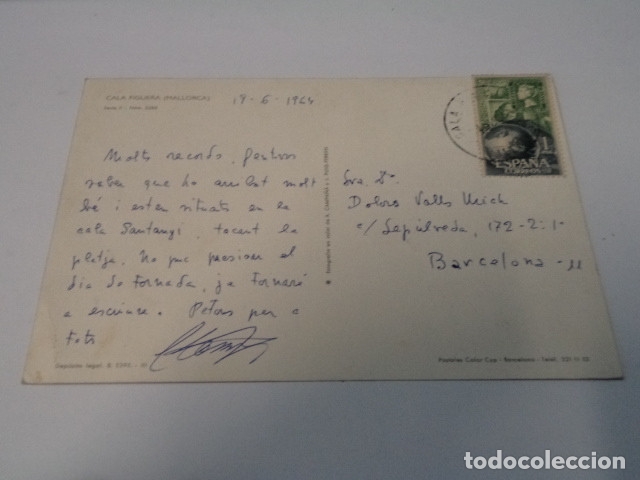 CALA FIGUERA (MALLORCA)
19-6-1964
Molts records,
saber que he arribat molt
bé i estem situats en la
cala Santanyi, tocant la
platja. No puc precisar el
dia de tornada, ja tornaré
a escriure. Petons per a
tots
Sra. Dª
Dolors Valls
c/ Sepúlveda, 172-2:1-
Barcelona-11
1
ESPAÑA
CORREOS
CALA
Depósito legal: B.
Postales Color Barcelona - Teléf.
todocoleccion.net